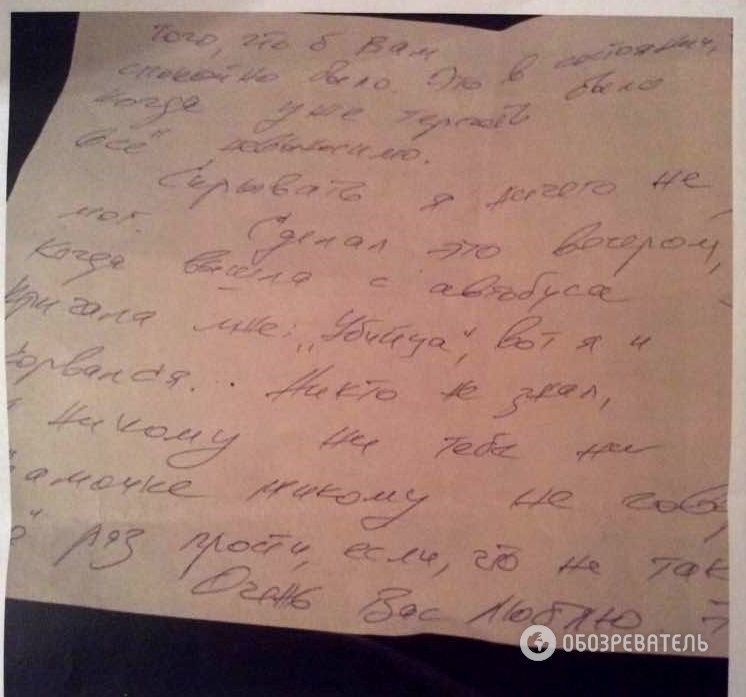 того, что б Вам
спокойно было. Это в состоянии, было
когда уже терпеть
всё невыносимо.
Скрывать я ничего не
мог. Сделал это вечером,
когда вышла с автобуса
кричала мне: "Убийца", вот я и
сорвался... Никто не знал,
никому ни тебе ни
мамочке никому не гов
раз прости, если, что не так
Очень Вас люблю.
ОБОЗРЕВАТЕЛЬ